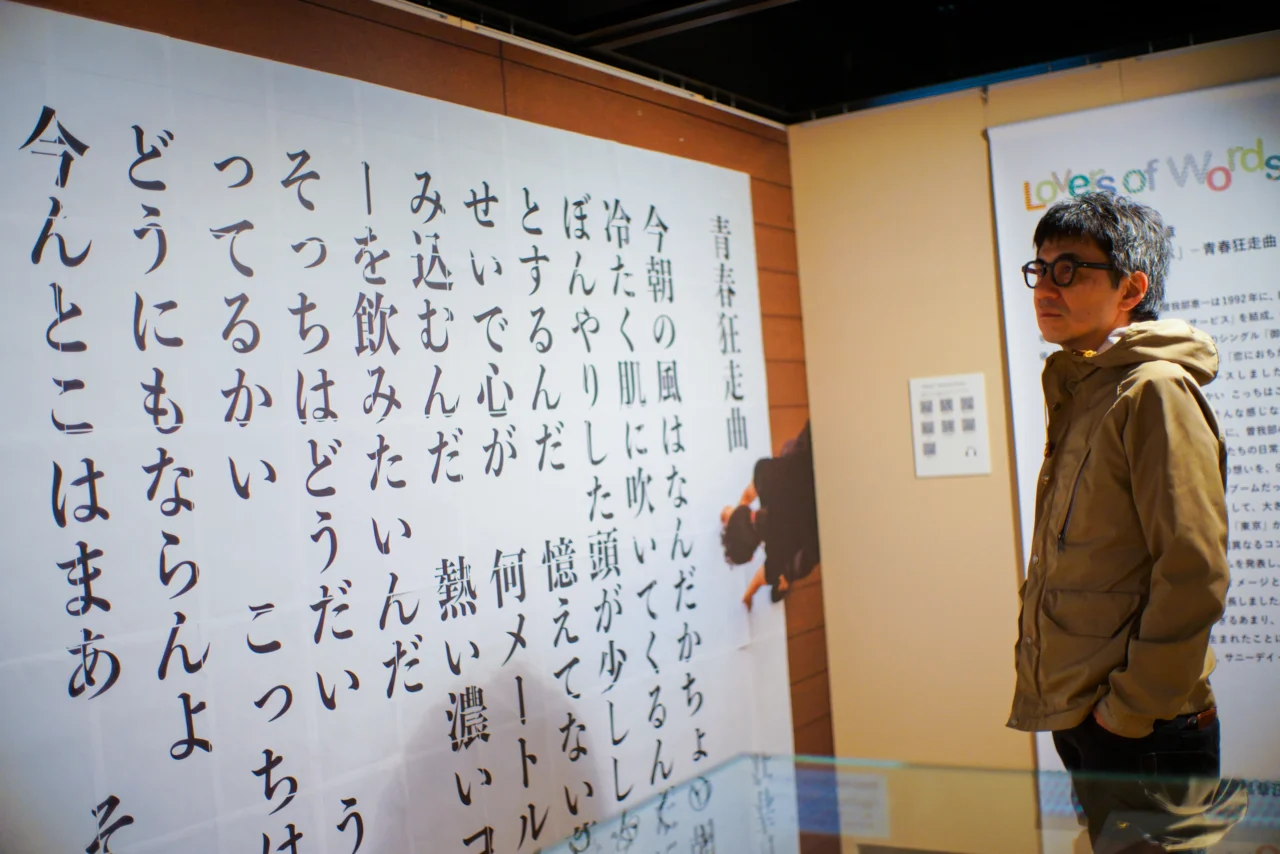 青春狂走曲
今朝の風はなんだかちょ
冷たく肌に吹いてくるんだ
ぼんやりした頭が少しし
とするんだ　憶えてない
せいで心が　何メートル
み込むんだ　熱い濃いコ
ーを飲みたいんだ
そっちはどうだい　う
ってるかい　こっちは
どうにもならんよ
今んとこはまあ　そ
Lovers of Words
章
』－青春狂走曲
曽我部恵一は1992年に、
サービス』を結成。
のシングル「御
「恋におち
ースしました
やい こっちはこ
んな感じな
に、曽我部の
たちの日常
の想いを、
ブームだっ
して、大き
「東京」が
異なるコン
を発表し
メージと
長しました
ぎるあまり、
生まれたことに
サニーデイ・